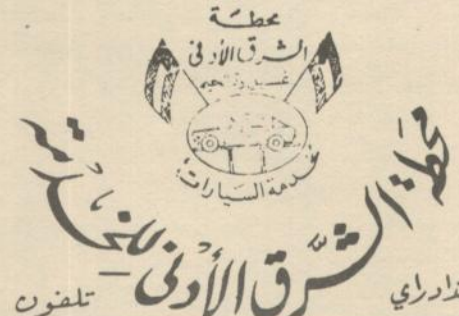 محطة
الشرق الأدنى
غسيل وتشحيم
لخدمة السيارات
محطة الشرق الأدنى للخدمة
تلفون